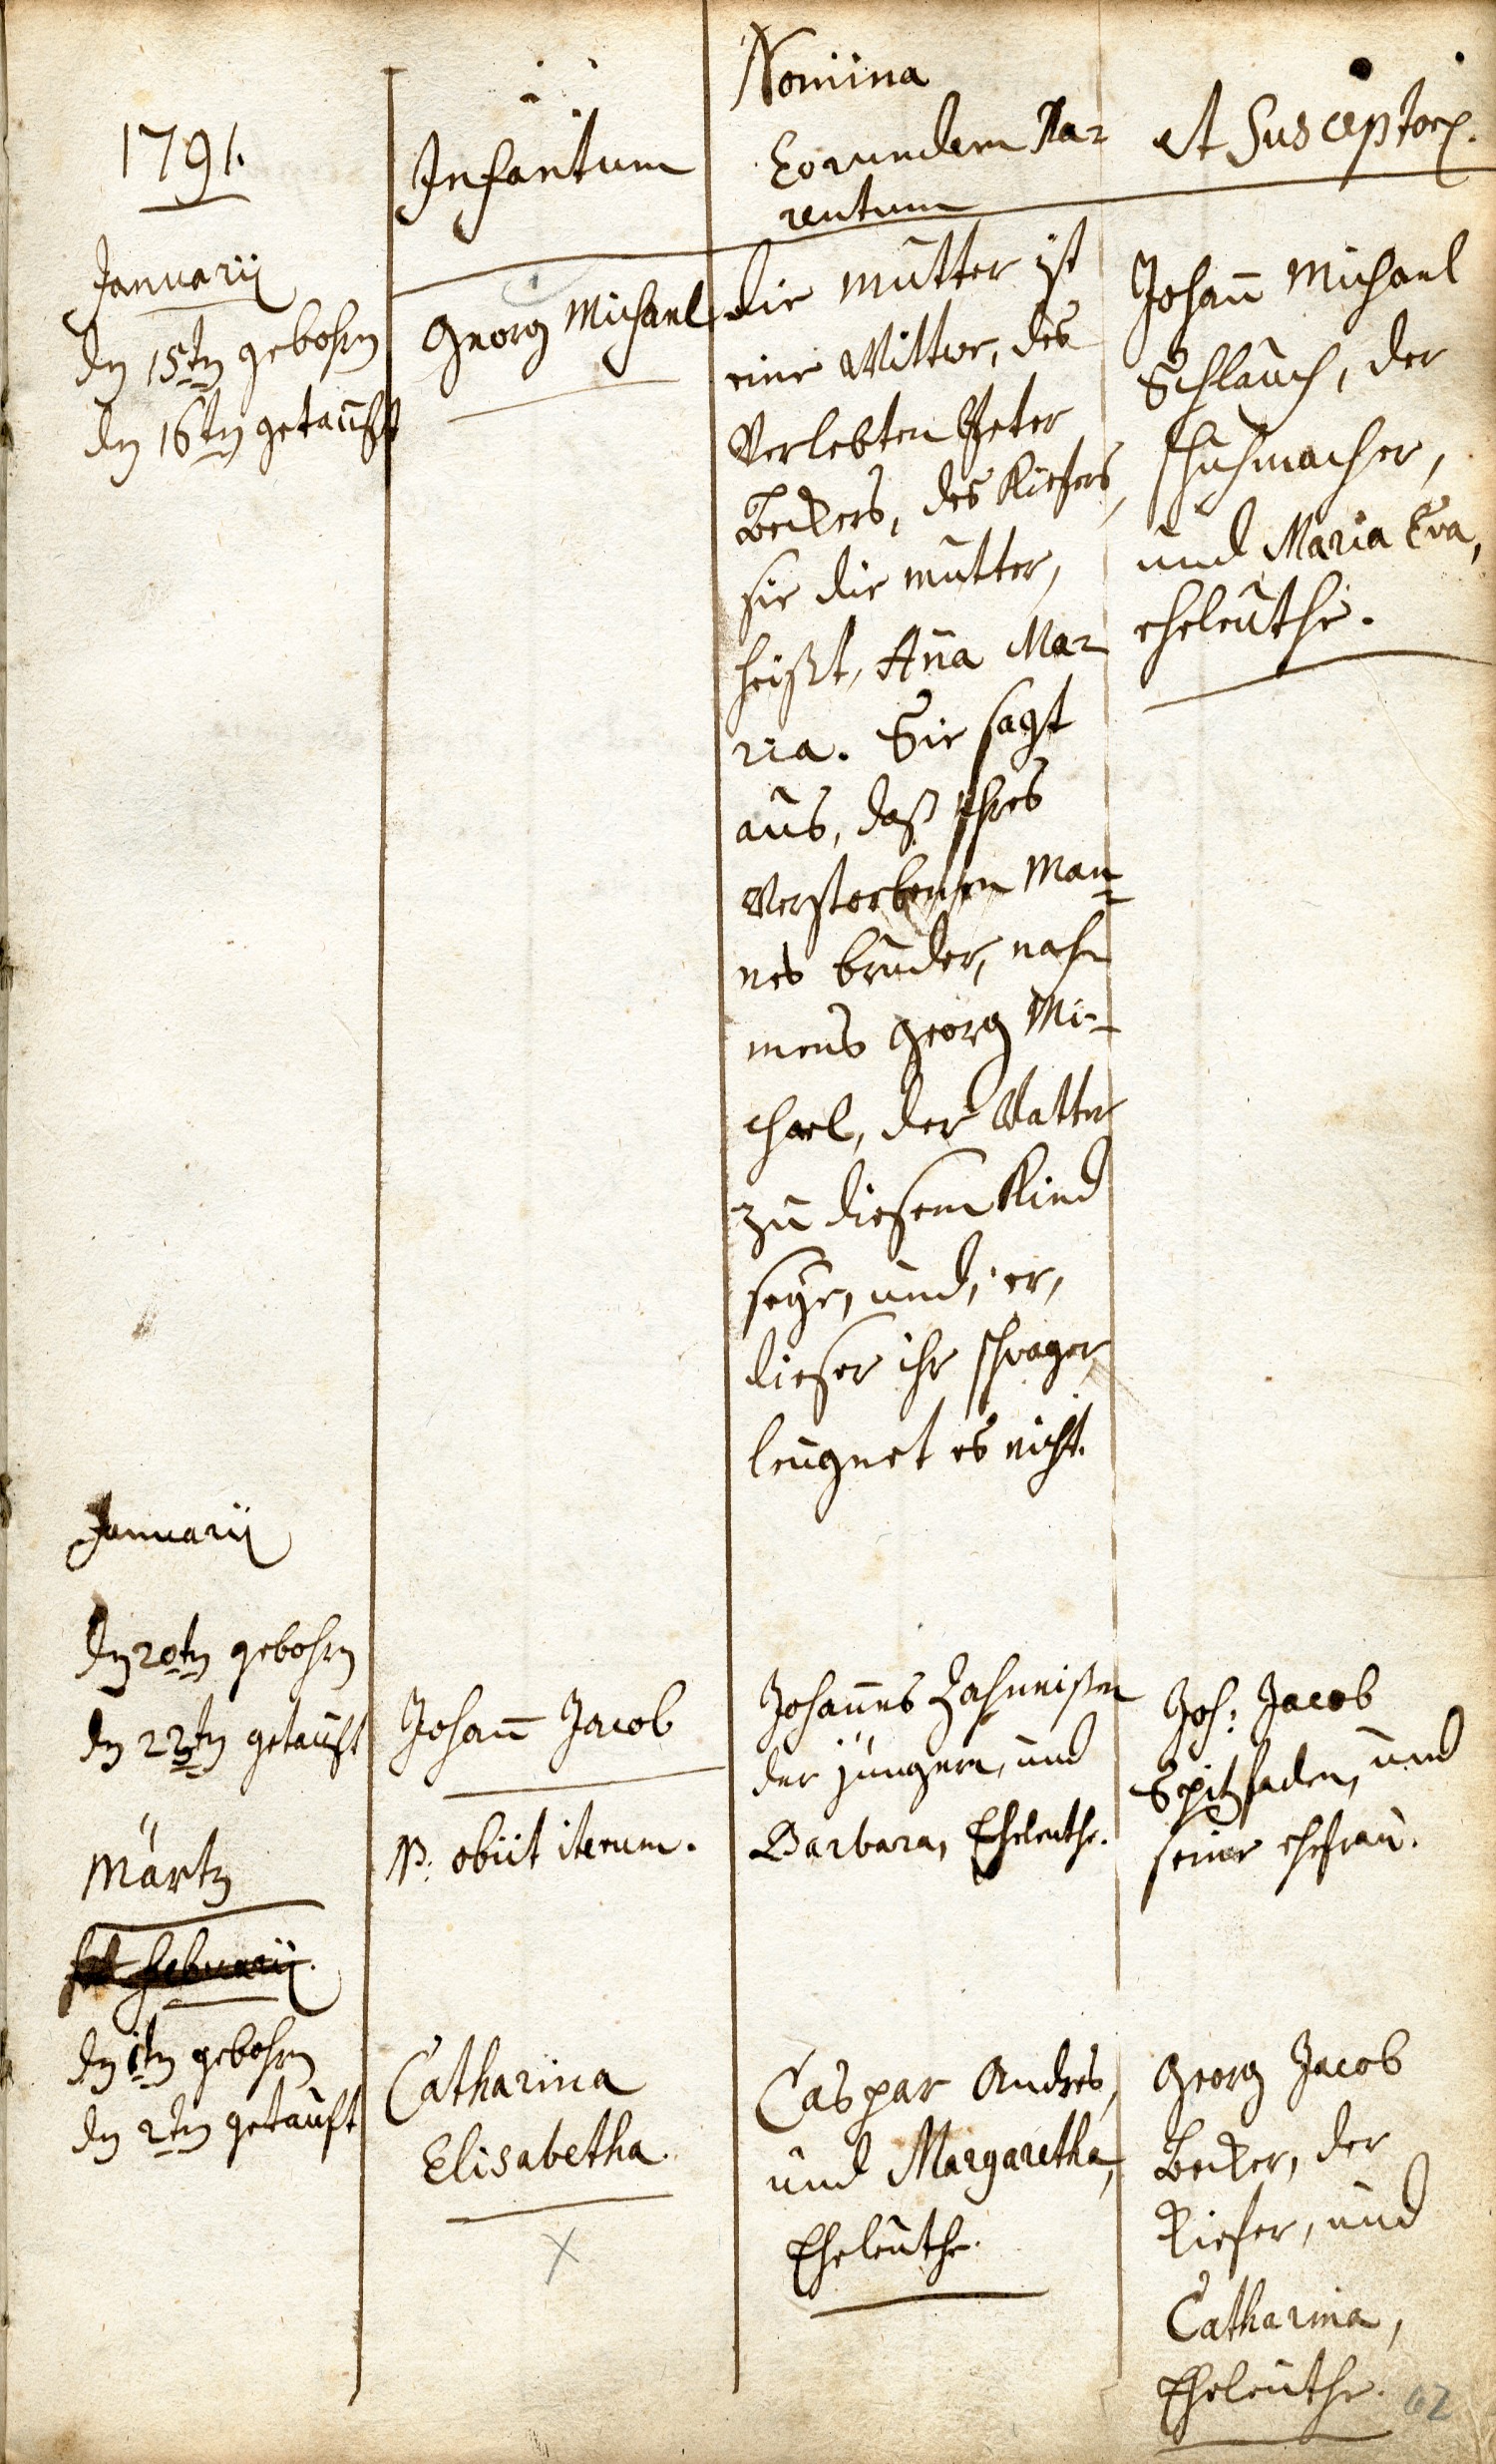 Nomina
1791.
Infantum
Eorundem Pa-
rentum
et Susceptor.
Januarij
den 15ten gebohrn
den 16ten getaufft
Georg Michael
die Mutter ist
eine Wittwe, des
Verlebten Peter
Beckers, des Kiefers,
sie die Mutter,
heißt, Anna Ma-
ria. Sie sagt
aus, daß ihres
Verstorbenen Man-
nes bruder, nah-
mens Georg Mi-
chael, der Vatter
zu diesem Kind
seye, und, er,
dieser ihr schwager
leugnet es nicht.
Johann Michael
Schlauch, der
schuhmacher,
und Maria Eva,
eheleuthe.
Januarij
den 20ten gebohrn
den 22ten getauft
Johann Jacob
NB: obiit iterum.
Johannes
der jüngere, und
Barbara, Eheleuthe.
Joh: Jacob
Spitzfaden, und
seine ehefrau.
Märtz
Februarij.
den 1ten gebohrn
den 2ten getauft
Catharina
Elisabetha.
Caspar Andres,
und Margaretha,
Eheleuthe.
Georg Jacob
Becker, der
Kiefer, und
Catharina,
Eheleuthe.
62